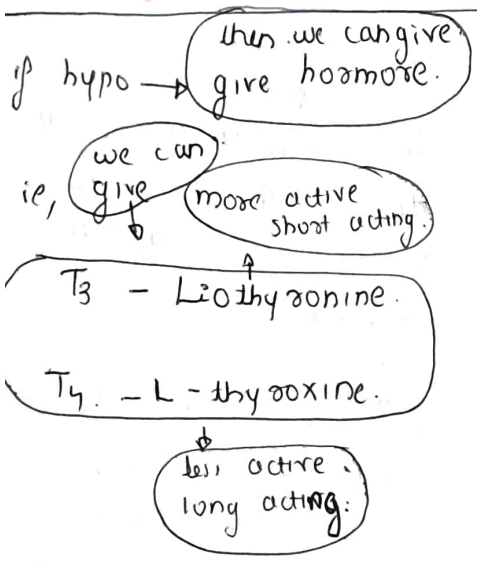 then we can give
if hypo → give hormore.
we can
ie, give
more active
short acting.
T3 - Liothyronine.
T4. - L - thyroxine.
less active.
long acting.